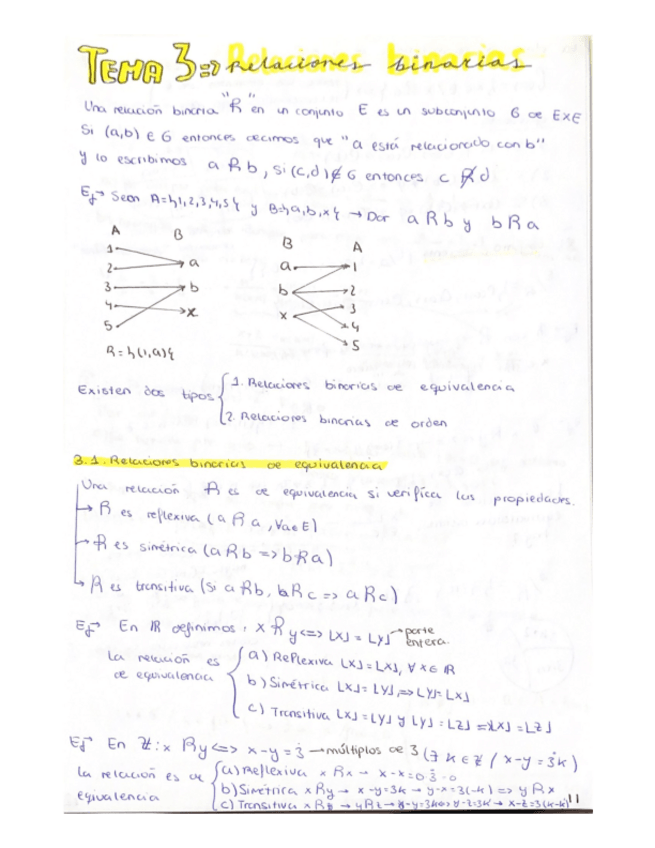 TEMA 3 => Relaciones binarias
Una relación binaria "R" en un conjunto E es un subconjunto G de EXE
Si (a,b) ∈ G entonces decimos que "a está relacionado con b"
y lo escribimos a R b, si (c,d) ∉ G entonces c R̸ d
Ej→ Sean A={1,2,3,4,5} y B={a,b,x} → Dar a R b y b R a
A B
1 a
2 b
3 x
4
5
B A
a 1
b 2
x 3
4
5
R = {(1,a)}
Existen dos tipos { 1. Relaciones binarias de equivalencia
2. Relaciones binarias de orden
3.1. Relaciones binarias de equivalencia
Una relación R es de equivalencia si verifica las propiedades.
→ R es reflexiva (a R a, ∀a∈E)
→ R es simétrica (a R b => b R a)
→ R es transitiva (Si a R b, b R c => a R c)
Ej→ En ℝ definimos, x R y <=> ⌊x⌋ = ⌊y⌋ → parte entera.
La relación es de equivalencia
a) Reflexiva ⌊x⌋ = ⌊x⌋, ∀ x ∈ ℝ
b) Simétrica ⌊x⌋ = ⌊y⌋ => ⌊y⌋ = ⌊x⌋
c) Transitiva ⌊x⌋ = ⌊y⌋ y ⌊y⌋ = ⌊z⌋ => ⌊x⌋ = ⌊z⌋
Ej→ En ℤ: x R y <=> x-y = 3̇ → múltiplos de 3 (∃ k ∈ ℤ / x-y = 3k)
La relación es de eqivalencia
a) Reflexiva x R x → x-x=0 3̇·0
b) Simétrica x R y → x-y=3k → y-x=3(-k) => y R x
c) Transitiva x R y → y R z →
11